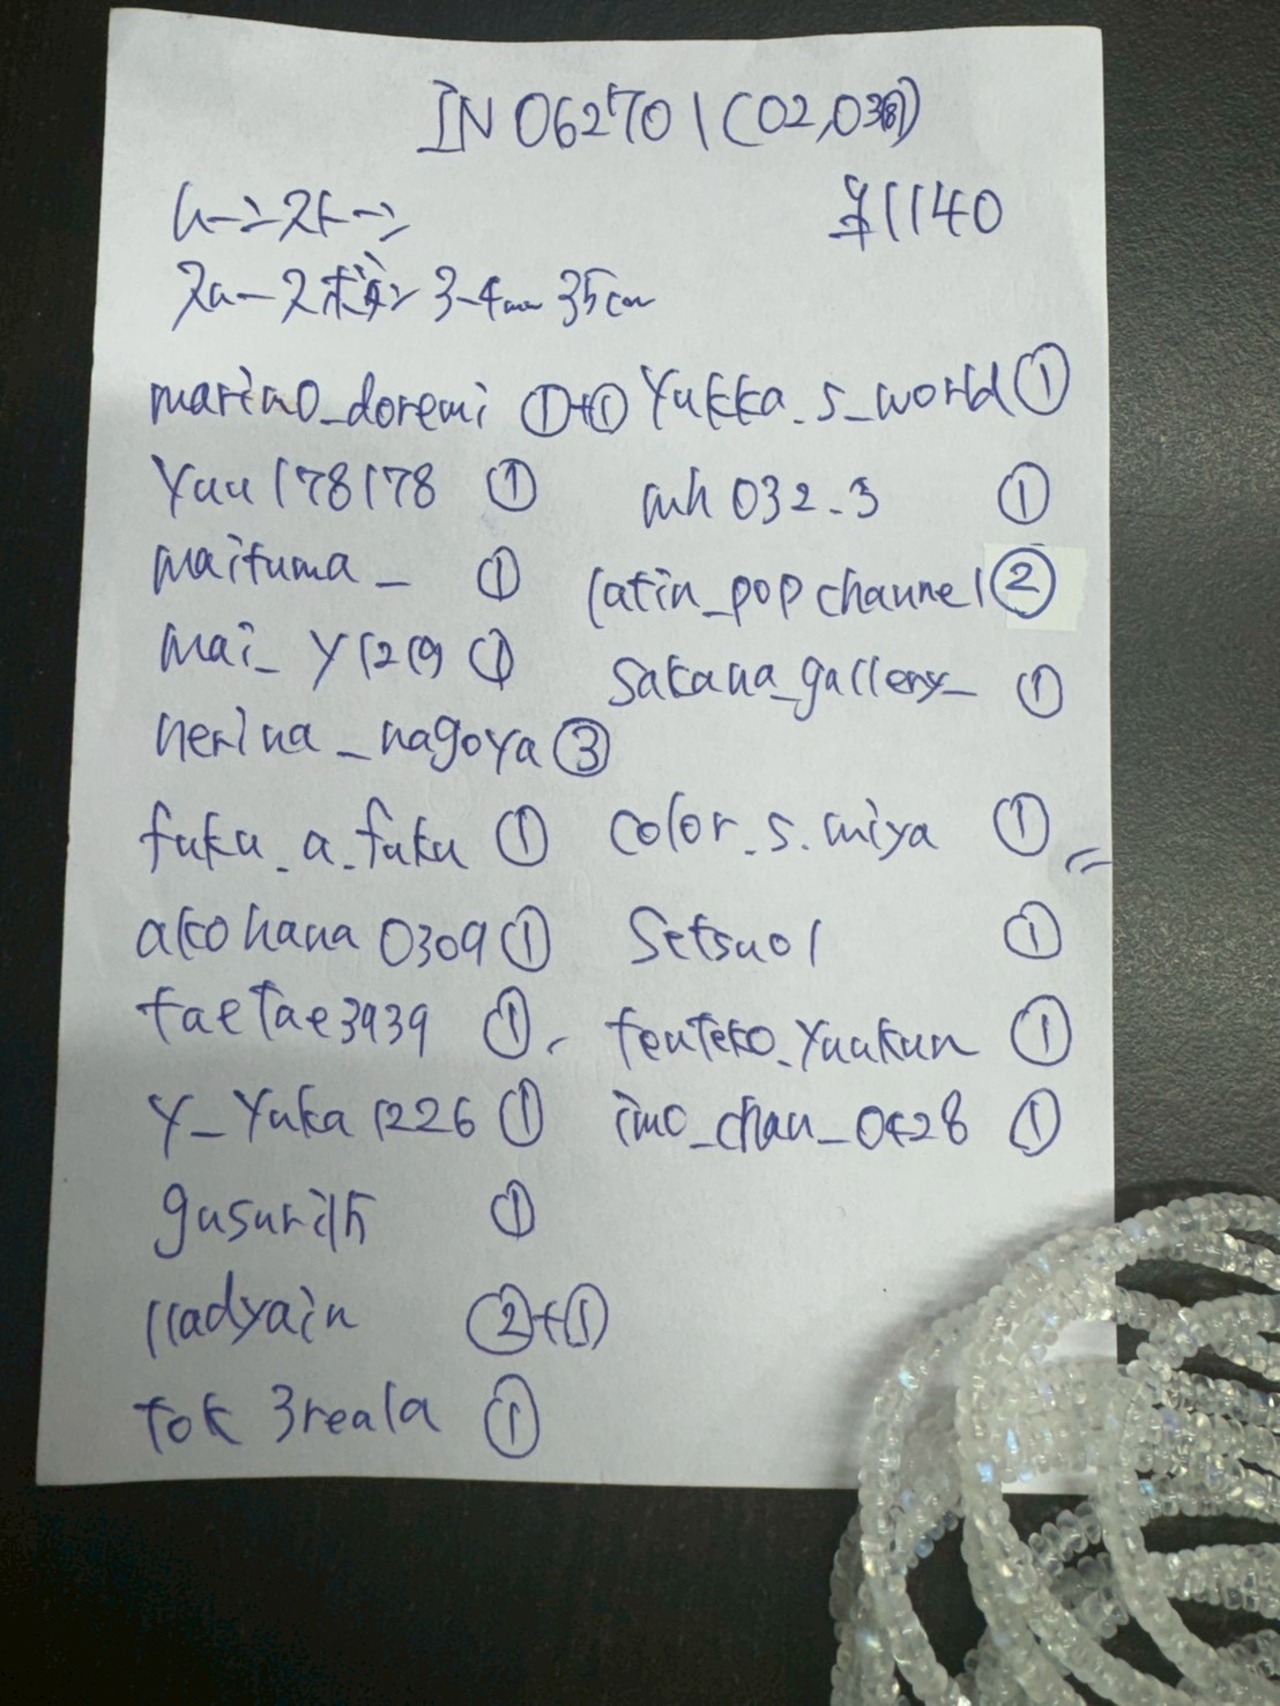 IN062701(02,03)
ムーンストーン ¥1140
スムースボタン 3-4mm 35cm
marino_doremi ①+① Yukka_s_world ①
Yuu178178 ① mh032_3 ①
maituma_ ① latin_popchannel ②
mai_y1219 ① sakana_gallery_ ①
nerina_nagoya ③
fuku_a_fuku ① color_s.miya ①
akohana0309 ① Setsuo1 ①
taetae3939 ① tenteko_Yuukun ①
Y_Yuka1226 ① imo_chan_0428 ①
gusuri15 ①
lladyain ②+①
tok3reala ①